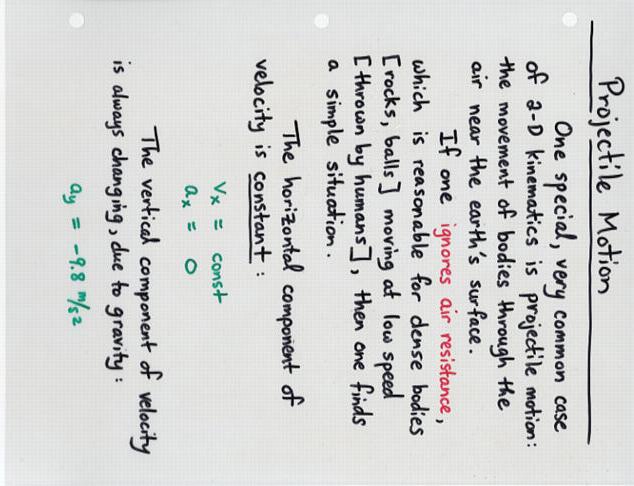 Projectile Motion
One special, very common case
of 2-D kinematics is projectile motion:
the movement of bodies through the
air near the earth's surface.
If one ignores air resistance,
which is reasonable for dense bodies
[rocks, balls] moving at low speed
[thrown by humans], then one finds
a simple situation.
The horizontal component of
velocity is constant:
Vx = const
ax = 0
The vertical component of velocity
is always changing, due to gravity:
ay = -9.8 m/s2